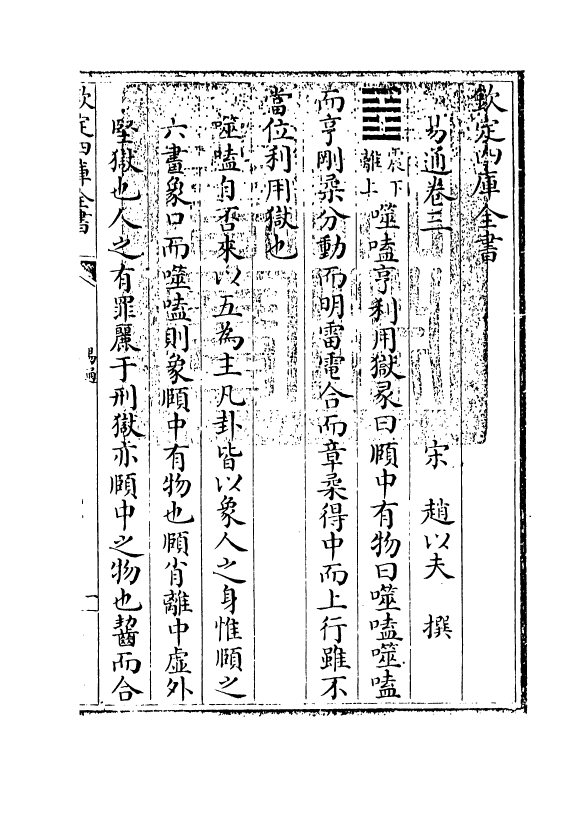 欽定四庫全書
易通卷三　宋　趙以夫　撰
䷔震下離上噬嗑亨利用獄彖曰頤中有物曰噬嗑噬嗑
而亨剛柔分動而明雷電合而章柔得中而上行雖不
當位利用獄也
噬嗑自否來以五為主凡卦皆以象人之身惟頤之
六畫象口而噬嗑則象頤中有物也頤肖離中虛外
堅獄也人之有罪麗于刑獄亦頤中之物也齧而合
欽定四庫全書
易通
一